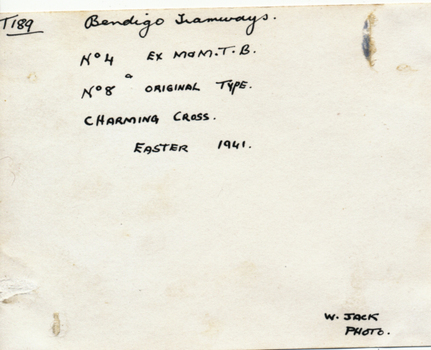 T189 Bendigo Tramways.
No 4 Ex M&M.T.B.
No 8 ORIGINAL TYPE.
CHARMING CROSS.
EASTER 1941.
W. JACK
PHOTO.